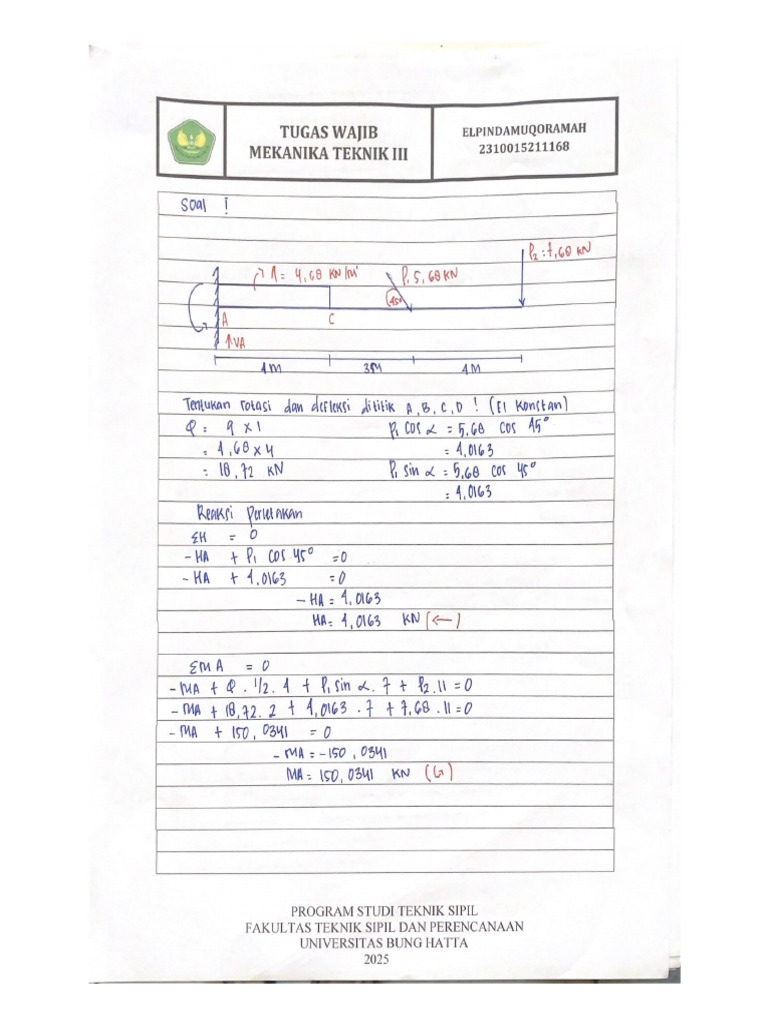 TUGAS WAJIB
MEKANIKA TEKNIK III
ELPINDAMUQORAMAH
2310015211168
Soal !
q = 4,68 KN/m'
P1 5,68 KN
P2 = 7,68 KN
45°
A
C
VA
4M
3M
4M
Tentukan rotasi dan defleksi dititik A, B, C, D ! (EI Konstan)
Q = q x l
= 4,68 x 4
= 18,72 KN
P1 cos α = 5,68 cos 45°
= 4,0163
P1 sin α = 5,68 cos 45°
= 4,0163
Reaksi Perletakan
ΣH = 0
- HA + P1 cos 45° = 0
- HA + 4,0163 = 0
- HA = 4,0163
HA = 4,0163 KN (←)
ΣMA = 0
- MA + Q . 1/2 . 4 + P1 sin α . 7 + P2 . 11 = 0
- MA + 18,72 . 2 + 4,0163 . 7 + 7,68 . 11 = 0
- MA + 150,0341 = 0
- MA = -150,0341
MA = 150,0341 KN
PROGRAM STUDI TEKNIK SIPIL
FAKULTAS TEKNIK SIPIL DAN PERENCANAAN
UNIVERSITAS BUNG HATTA
2025